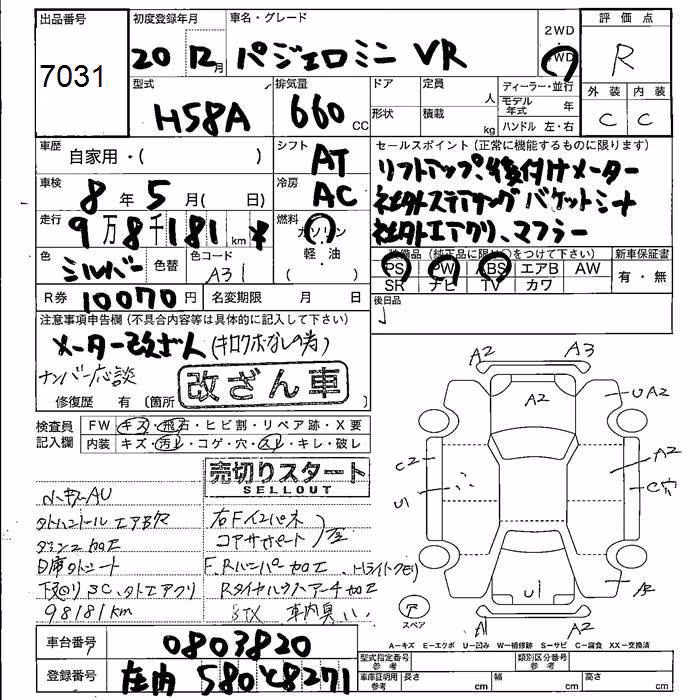 出品番号 初度登録年月 車名・グレード 2WD 評価点
7031 20 12月 パジェロミニ VR 4WD R
型式 排気量 ドア 定員 人 ディーラー・並行 外装 内装
H58A 660 CC 形状 積載 kg モデル年式 年 C C
ハンドル 左・右
車歴 自家用・( ) シフト AT セールスポイント(正常に機能するものに限ります)
リフトアップ、後付けメーター
車検 8年5月( 日) 冷房 AC 社外ステアリング バケットシート
走行 9万8千181km ¥ 燃料 ガソリン 社外エアクリ、マフラー
軽・油
( )
色 シルバー 色替 色コード A31
装備品(純正品に限り○をつけて下さい) 新車保証書
PS PW ABS エアB AW 有・無
SR ナビ TV カワ
R券 10070円 名変期限 月 日 後日品
注意事項申告欄(不具合内容等は具体的に記入して下さい)
メーター改ざん(キロクボなしの為)
ナンバー応談
修復歴 有 (箇所 改ざん車
検査員記入欄 FW キズ・飛石・ヒビ割・リペア跡・X要
内装 キズ・汚レ・コゲ・穴・スレ・キレ・破レ
売切りスタート
SELLOUT
エアB欠 右Fインパネ
コアサポート
加工 F、Rバンパー加工
シート
下廻りSC、 Rタイヤハウスアーチ加工
98181km 車内臭い
A2 A3
A2 UA2
C2 A2
U1 C穴
U1
A1 A2
スペア
A=キズ E=エクボ U=凹み W=補修跡 S=サビ C=腐食 XX=交換済
車台番号 0803820 型式指定番号 類別区分番号
登録番号 庄内 580 よ 8271 車庫証明用参考 長さ cm 幅 cm 高さ cm
参考 参考